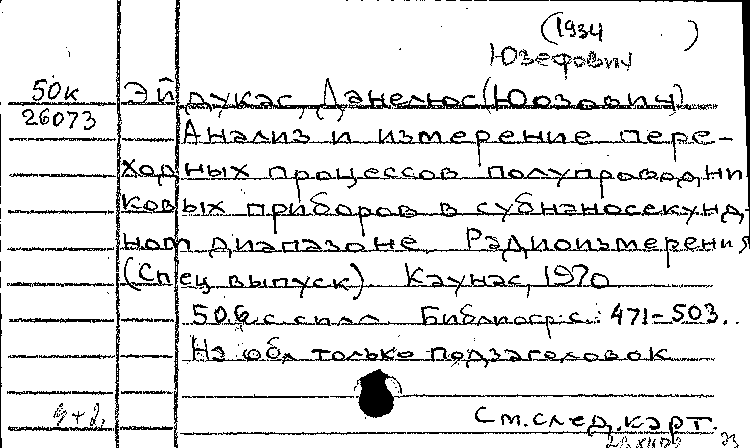 (1934 )
Юзефович
50к Эйдукас, Данелюс (Юозович).
26073 Анализ и измерение пере-
ходных процессов полупроводни
ковых приборов в субнаносекунд-
ном диапазоне. Радиоизмерения
(Спец выпуск). Каунас, 1970
506 с. с илл. Библиогр с.: 471-503.
На обл только подзаголовок
См. след. карт.